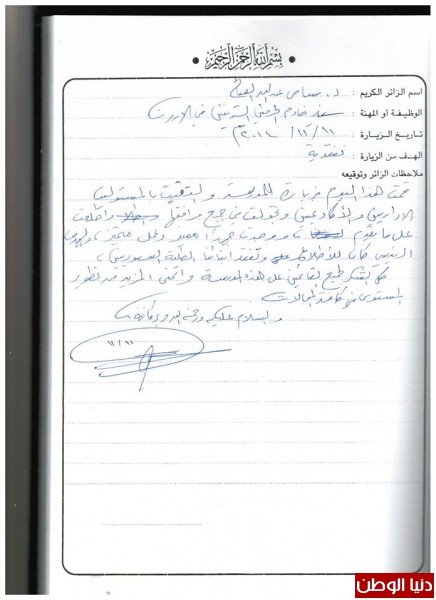 بسم الله الرحمن الرحيم
اسم الزائر الكريم : د. سامي عبدالله الصالح
الوظيفة أو المهنة : سفير خادم الحرمين الشريفين في الأردن
تاريخ الزيارة : ١١ / ١٢ /
الهدف من الزيارة : تفقدية
ملاحظات الزائر وتوقيعه
قمت هذا اليوم بزيارة المدرسة والتقيت بالمسئولين
الاداريين والأكاديميين وتجولت في جميع مرافق واطلعت
على ما تقدم ووجدت جهداً وعمل متميز والهدف
الرئيس كان للأطلاع وتفقد ابنائنا الطلبة السعوديين
كل الشكر للقائمين على هذه المدرسة واتمنى المزيد من تطوير
المستوى في كافة المجالات
والسلام عليكم ورحمة الله وبركاته
١١/١١
دنيا الوطن